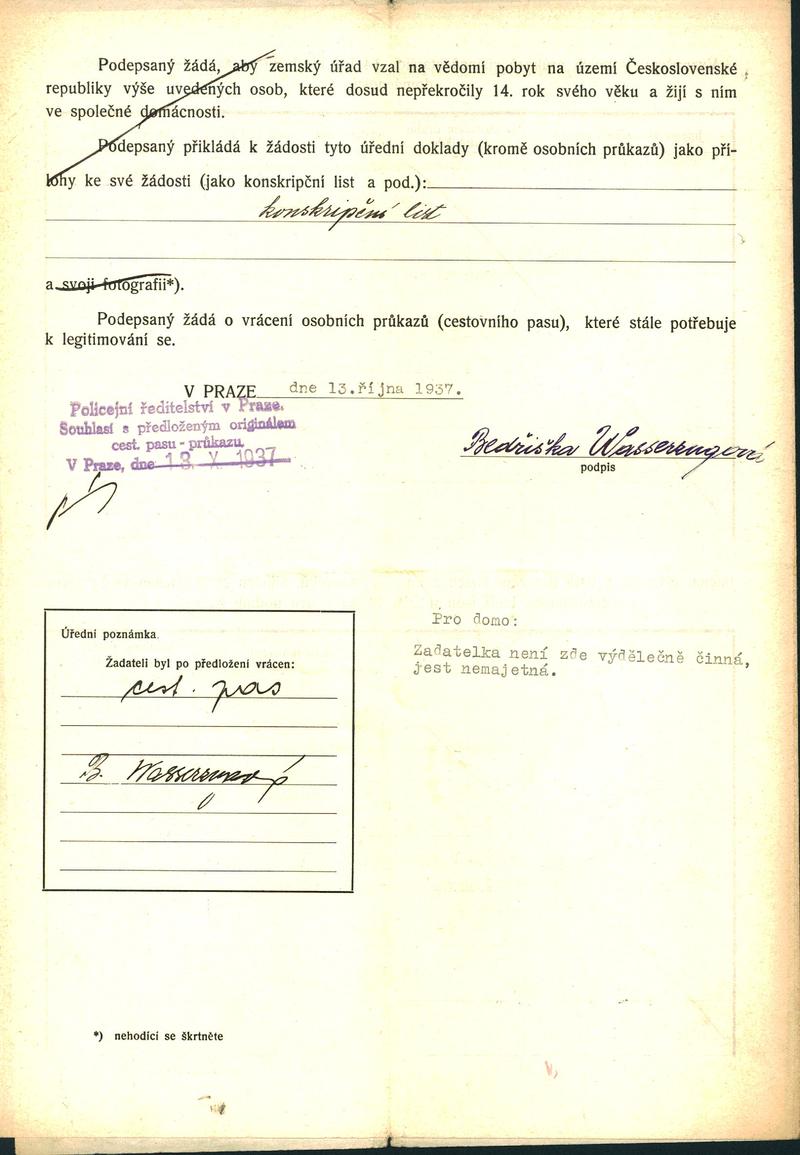 Podepsaný žádá, aby zemský úřad vzal na vědomí pobyt na území Československé
republiky výše uvedených osob, které dosud nepřekročily 14. rok svého věku a žijí s ním
ve společné domácnosti.
Podepsaný přikládá k žádosti tyto úřední doklady (kromě osobních průkazů) jako pří-
lohy ke své žádosti (jako konskripční list a pod.):
konskripční list
a svoji fotografii*).
Podepsaný žádá o vrácení osobních průkazů (cestovního pasu), které stále potřebuje
k legitimování se.
V PRAZE dne 13.října 1937.
Policejní ředitelství v Praze.
Souhlasí s předloženým originálem
cest. pasu - průkazu
V Praze, dne 13. X. 1937
Bedřiška Wasserzugová
podpis
Úřední poznámka.
Žadateli byl po předložení vrácen:
cest. pas
B. Wasserzugová
Pro domo:
Žadatelka není zde výdělečně činná,
jest nemajetná.
*) nehodící se škrtněte